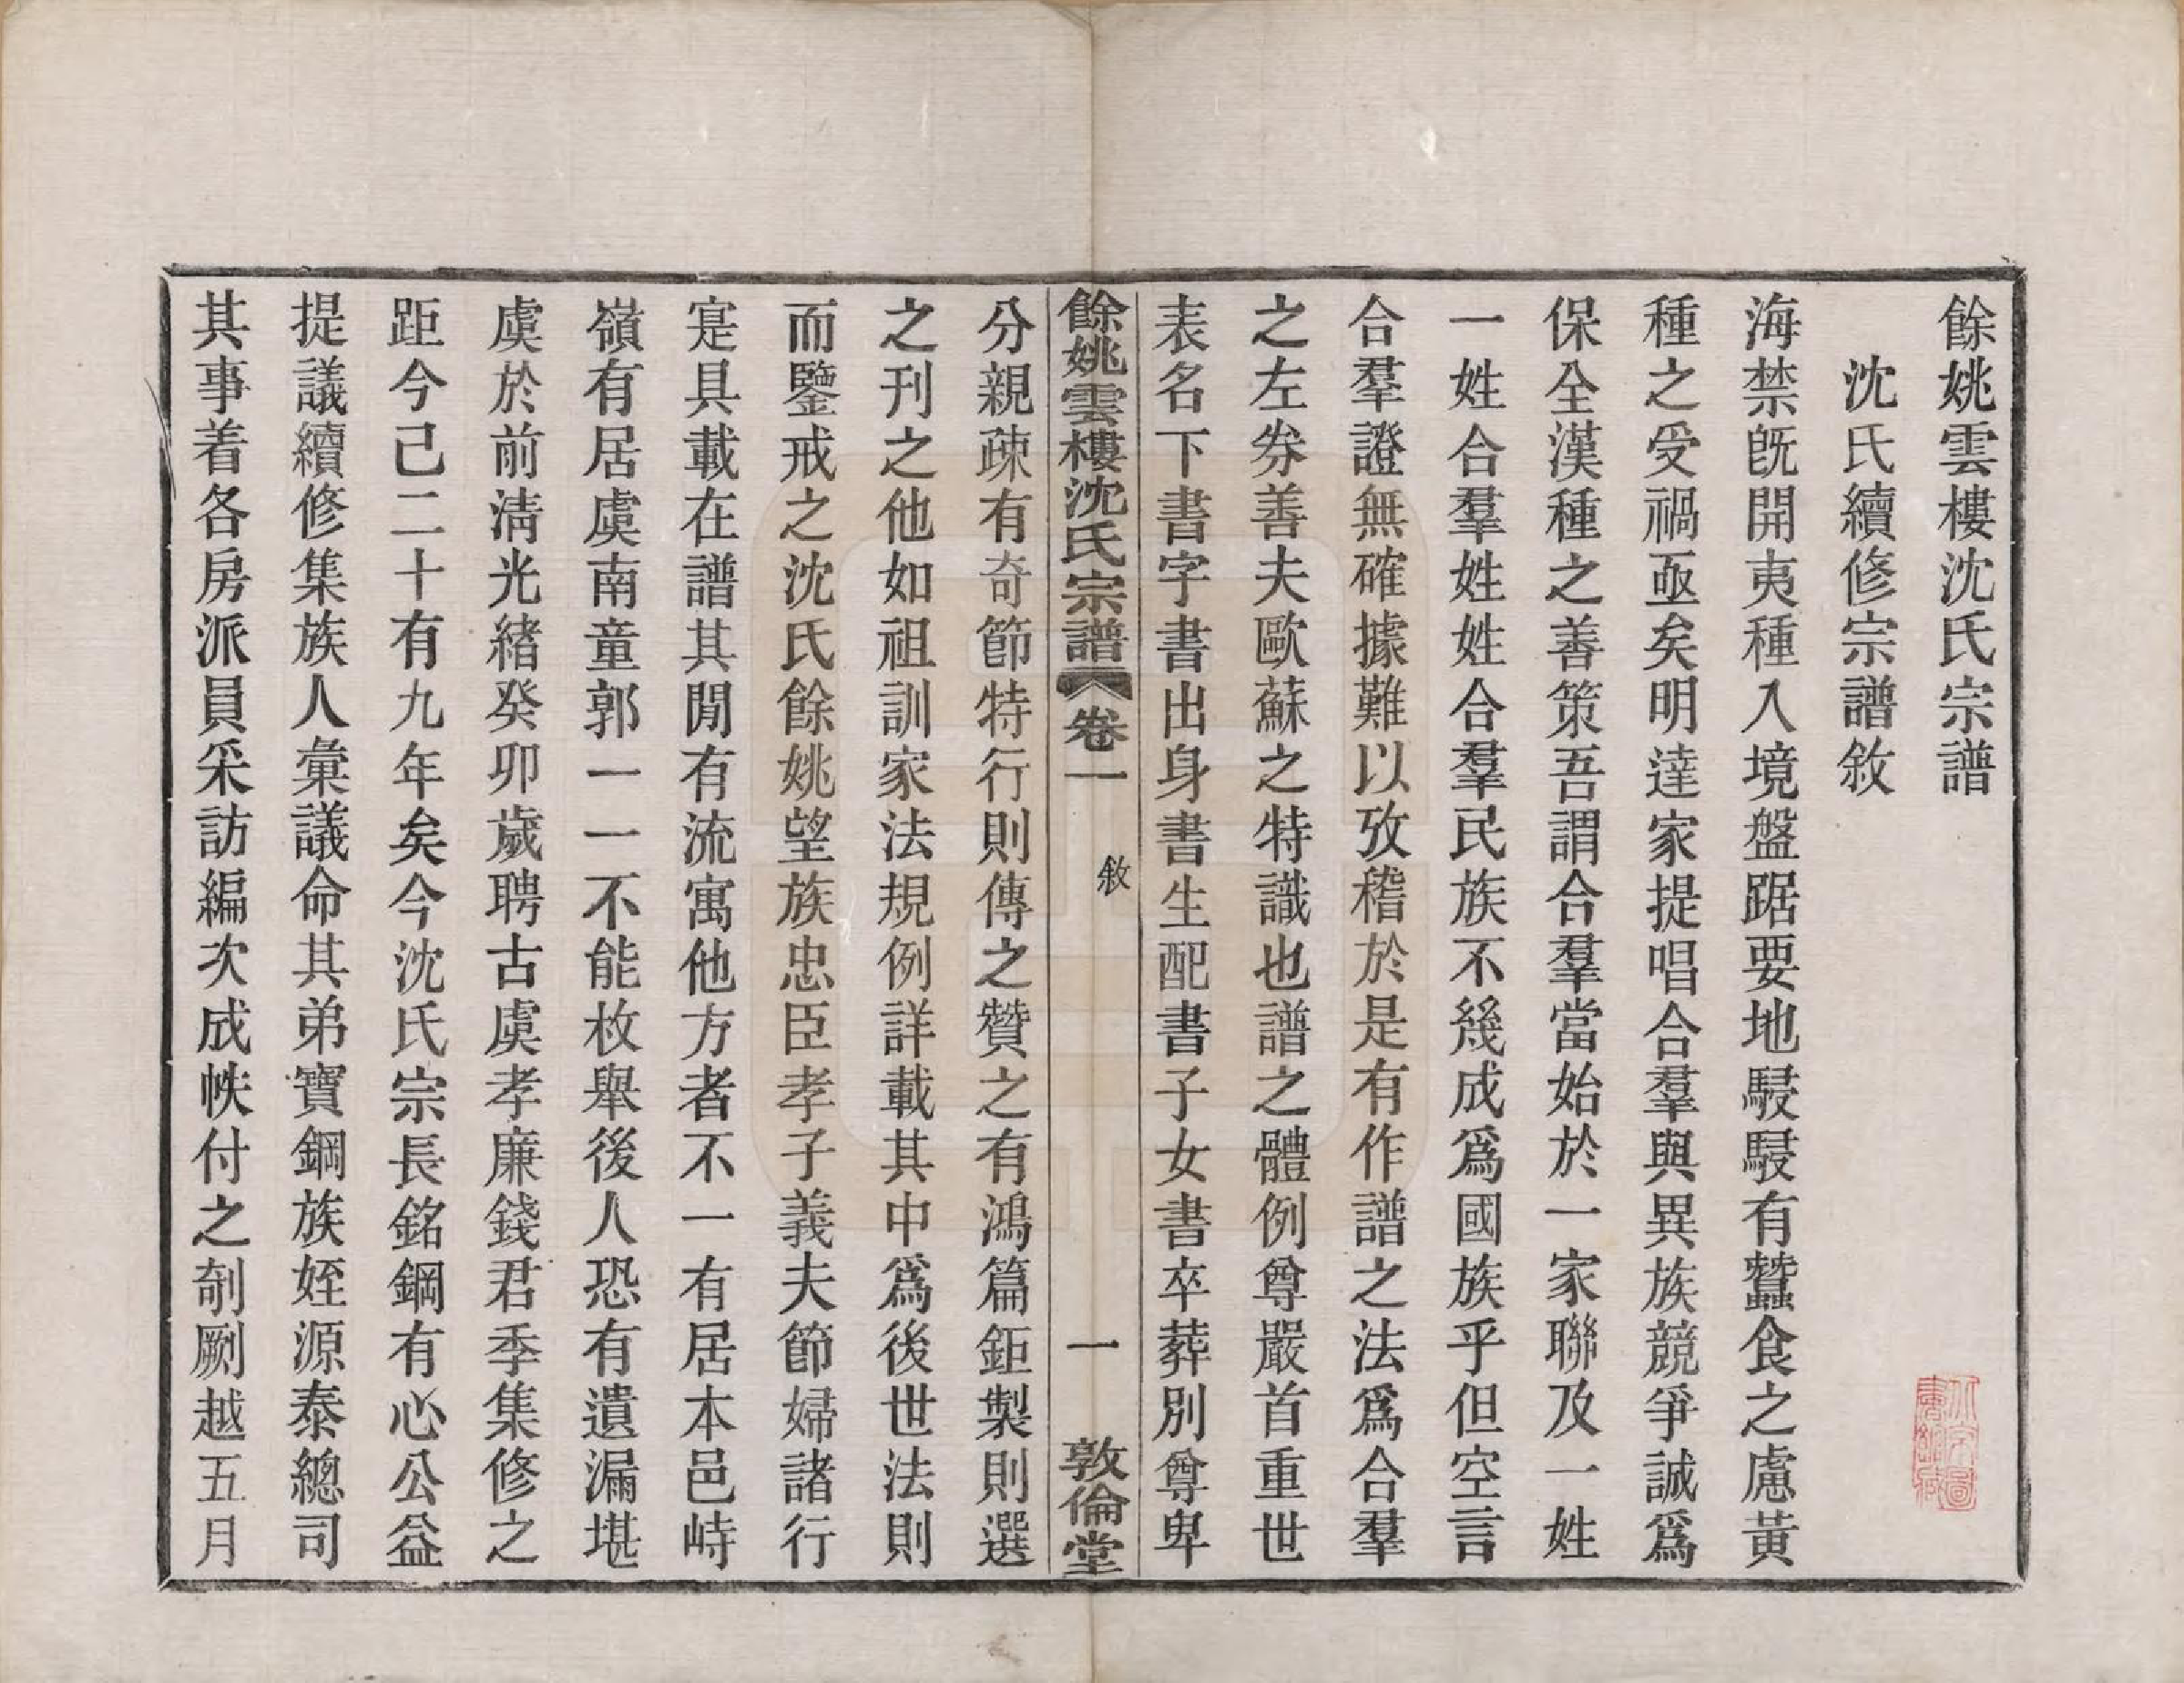 餘姚雲樓沈氏宗譜
沈氏續修宗譜敘
海禁旣開夷種入境盤踞要地駸駸有蠶食之慮黃
種之受禍亟矣明達家提唱合羣與異族競爭誠爲
保全漢種之善策吾謂合羣當始於一家聯及一姓
一姓合羣姓姓合羣民族不幾成爲國族乎但空言
合羣證無確據難以攷稽於是有作譜之法爲合羣
之左劵善夫歐蘇之特識也譜之體例尊嚴首重世
表名下書字書出身書生配書子女書卒葬別尊卑
餘姚雲樓沈氏宗譜 卷一 敘 一 敦倫堂
分親疎有奇節特行則傳之贊之有鴻篇鉅製則選
之刊之他如祖訓家法規例詳載其中爲後世法則
而鑒戒之沈氏餘姚望族忠臣孝子義夫節婦諸行
寔具載在譜其閒有流寓他方者不一有居本邑峙
嶺有居虞南童郭一一不能枚舉後人恐有遺漏堪
虞於前淸光緖癸卯歲聘古虞孝廉錢君季集修之
距今已二十有九年矣今沈氏宗長銘鋼有心公益
提議續修集族人彙議命其弟寶鋼族姪源泰總司
其事着各房派員采訪編次成帙付之剞劂越五月